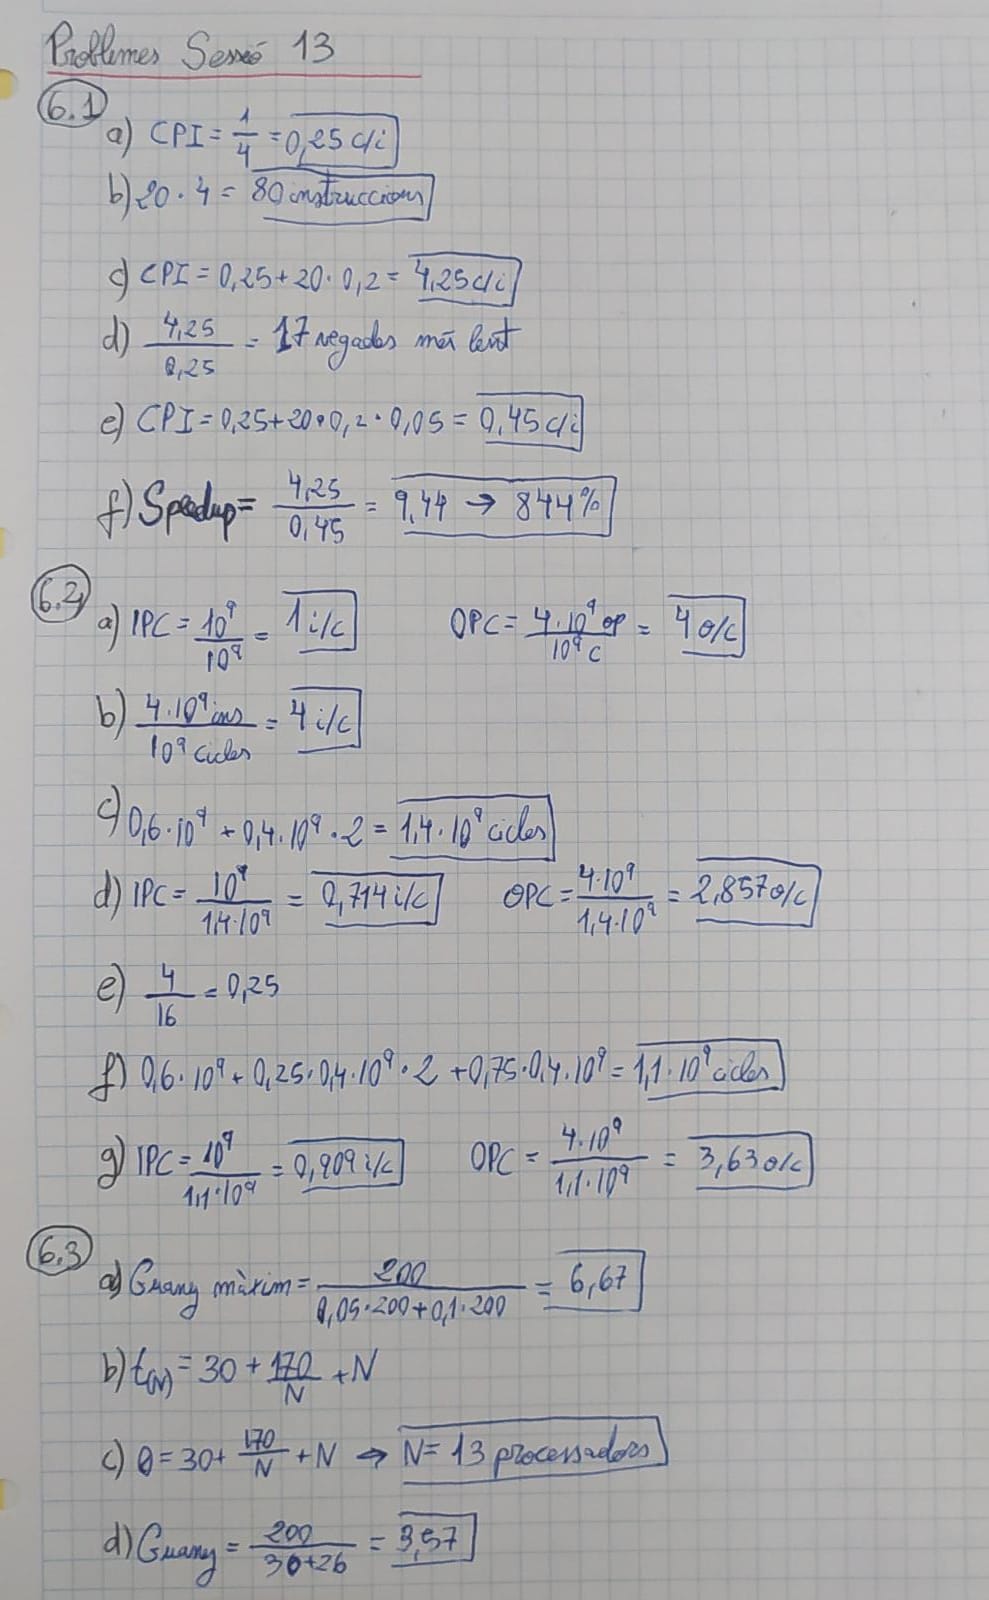 Problemes Sessió 13
6.1
a) CPI = 1/4 = 0,25 c/i
b) 20 · 4 = 80 instruccions
c) CPI = 0,25 + 20 · 0,2 = 4,25 c/i
d) 4,25/0,25 = 17 vegades més lent
e) CPI = 0,25 + 20 · 0,2 · 0,05 = 0,45 c/i
f) Speedup = 4,25/0,45 = 9,44 → 844%
6.2
a) IPC = 10⁹/10⁹ = 1 i/c OPC = 4·10⁹ op/10⁹ c = 4 o/c
b) 4·10⁹ ins/10⁹ cicles = 4 i/c
c) 0,6·10⁹ + 0,4·10⁹ · 2 = 1,4·10⁹ cicles
d) IPC = 10⁹/1,4·10⁹ = 0,714 i/c OPC = 4·10⁹/1,4·10⁹ = 2,857 o/c
e) 4/16 = 0,25
f) 0,6·10⁹ + 0,25·0,4·10⁹ · 2 + 0,75·0,4·10⁹ = 1,1·10⁹ cicles
g) IPC = 10⁹/1,1·10⁹ = 0,909 i/c OPC = 4·10⁹/1,1·10⁹ = 3,63 o/c
6.3
a) Guany màxim = 200/0,05·200 + 0,1·200 = 6,67
b) t(N) = 30 + 170/N + N
c) 0 = 30 + 170/N + N → N = 13 processadors
d) Guany = 200/30+26 = 3,57